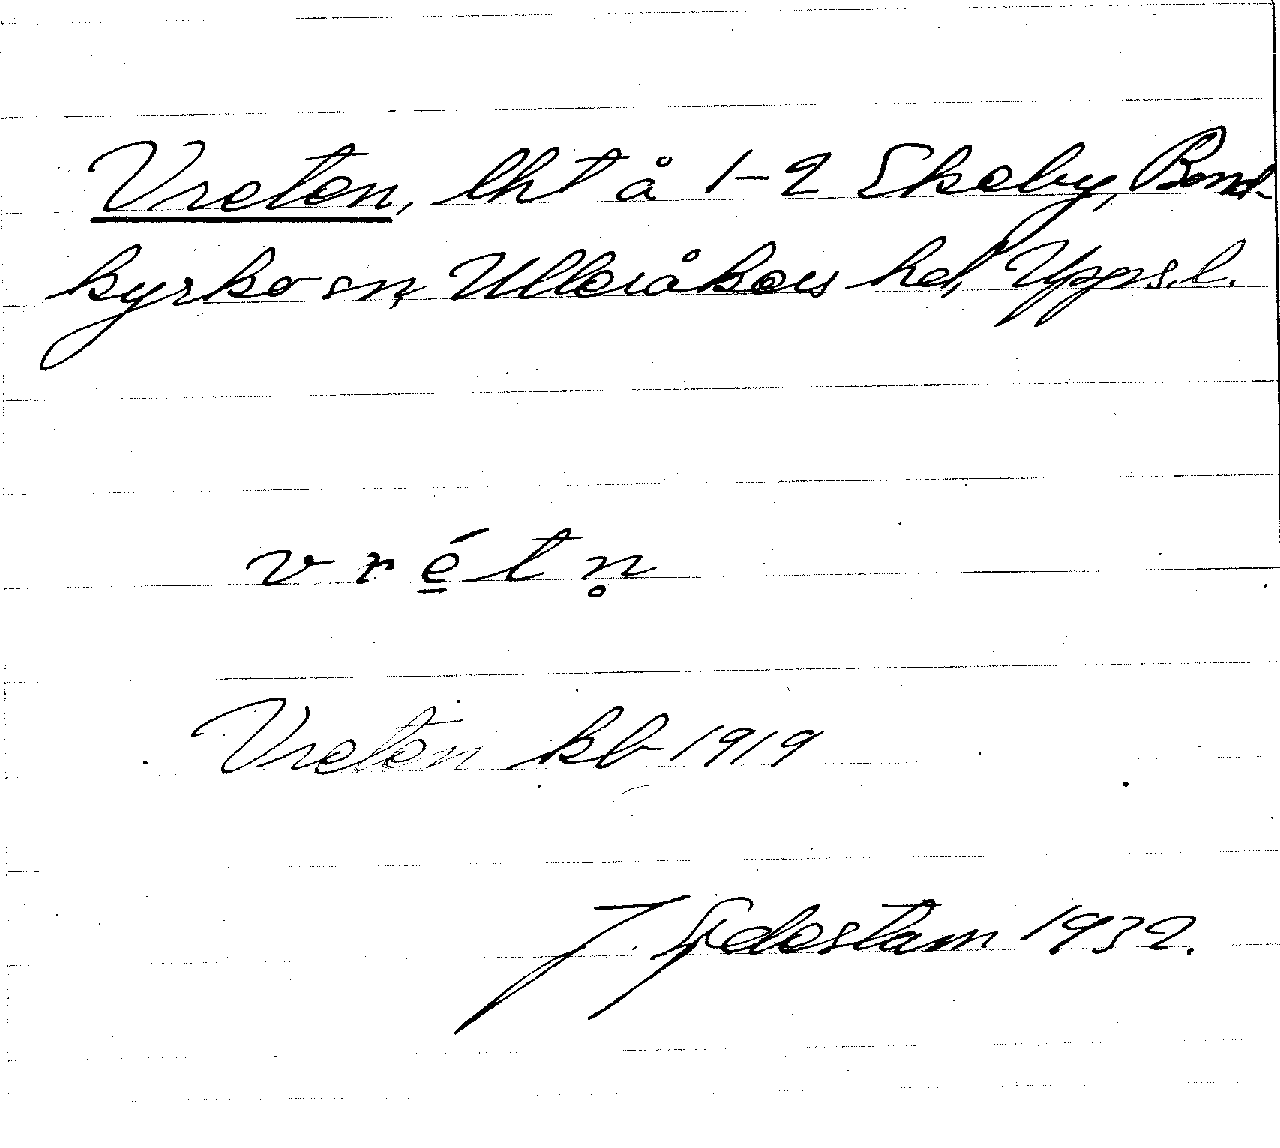 Vreten, lht å 1-2 Ekeby, Bond-
kyrko sn, Ulleråkers hd, Upps.l.
v r é̲ t n̥
Vreten kb 1919
J. Sjdestam 1932.